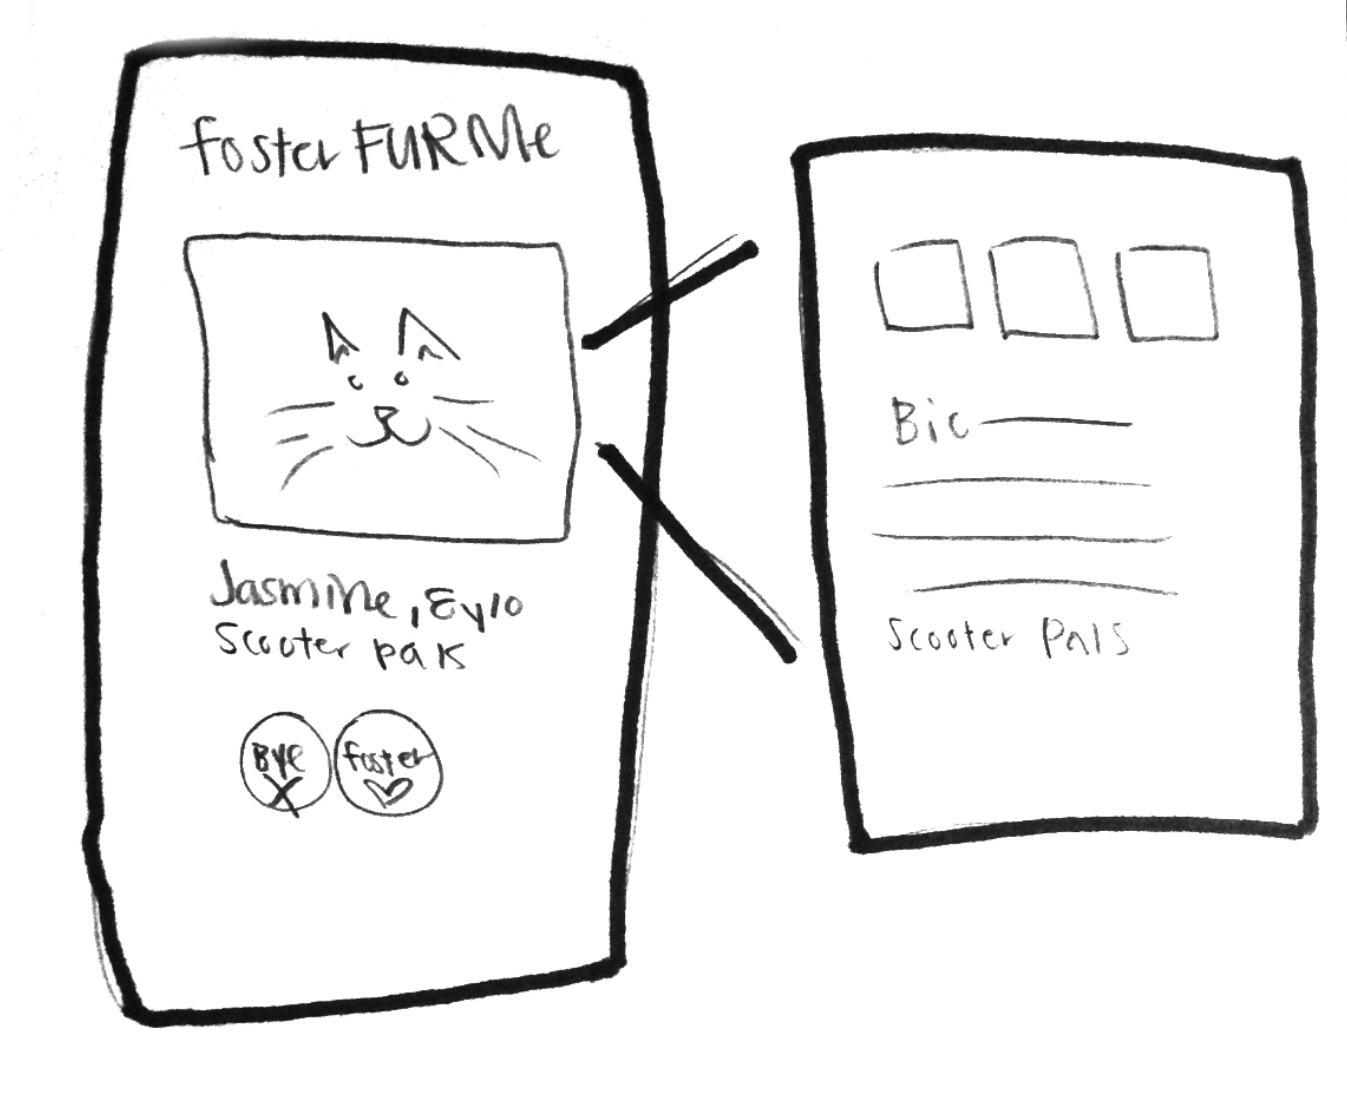 foster FURMe
Jasmine, 8y/o
Scooter pals
Bye
X
foster
Bio
Scooter Pals